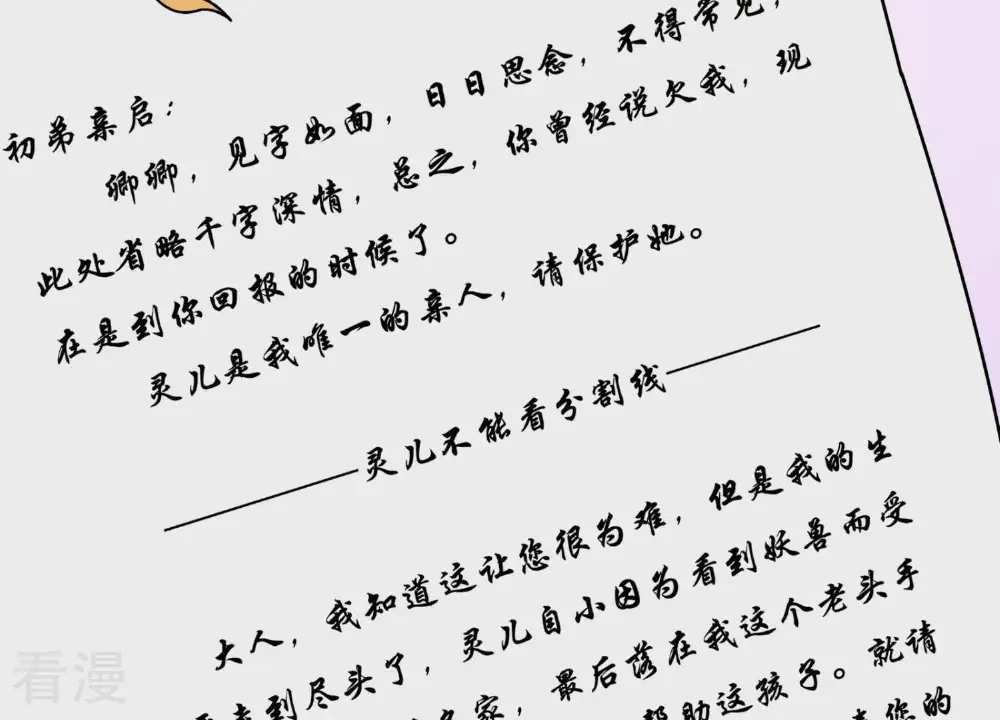 初弟亲启：
卿卿，见字如面，日日思念，不得常见，
此处省略千字深情，总之，你曾经说欠我，现
在是到你回报的时候了。
灵儿是我唯一的亲人，请保护她。
灵儿不能看分割线
大人，我知道这让您很为难，但是我的生
走到尽头了，灵儿自小因为看到妖兽而受
家，最后落在我这个老头手
帮助这孩子。就请
您的
看漫